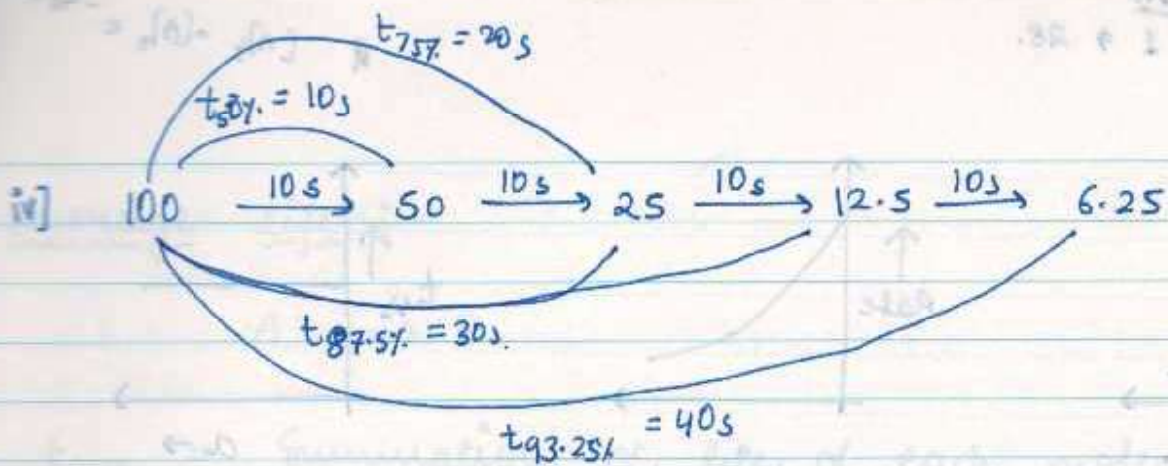 t75% = 20s
t50% = 10s
iv] 100 10s 50 10s 25 10s 12.5 10s 6.25
t87.5% = 30s.
t93.25% = 40s